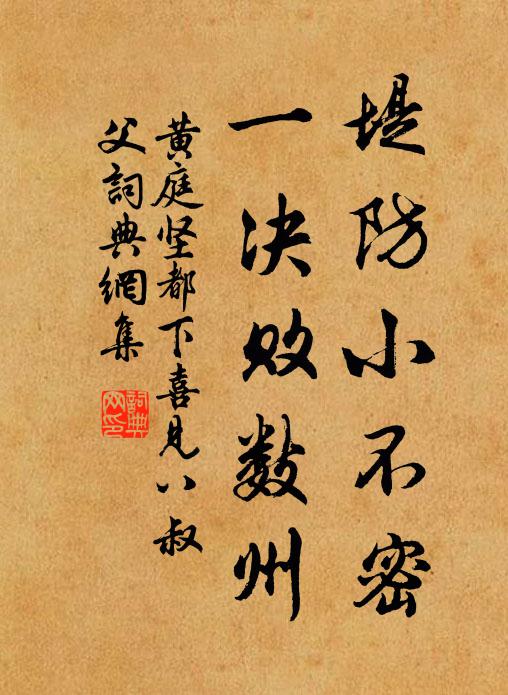 堤防小不密
一决败数州
黄庭坚都下喜見八叔
父詞典網集
詞典
网印